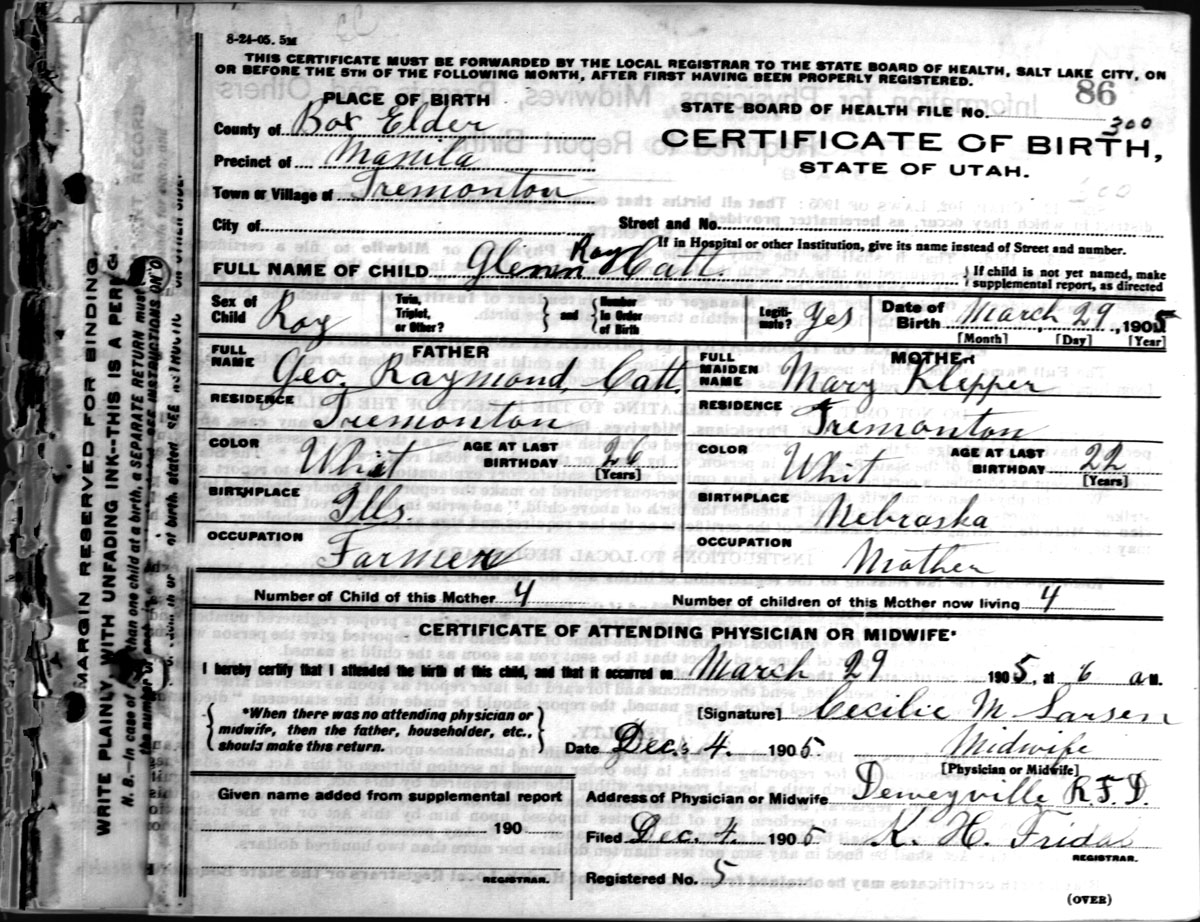 8-24-05. 5M
THIS CERTIFICATE MUST BE FORWARDED BY THE LOCAL REGISTRAR TO THE STATE BOARD OF HEALTH, SALT LAKE CITY, ON
OR BEFORE THE 5TH OF THE FOLLOWING MONTH, AFTER FIRST HAVING BEEN PROPERLY REGISTERED.
86
PLACE OF BIRTH
STATE BOARD OF HEALTH FILE No. 300
County of Box Elder
CERTIFICATE OF BIRTH,
Precinct of Manila
STATE OF UTAH.
Town or Village of Tremonton
City of Street and No.
If in Hospital or other Institution, give its name instead of Street and number.
FULL NAME OF CHILD Glenn Ray Catt
If child is not yet named, make
supplemental report, as directed
Sex of Child Boy Twin, Triplet, or Other? and Number In Order of Birth Legiti-mate? Yes Date of Birth March 29, 1905
[Month] [Day] [Year]
FATHER MOTHER
FULL NAME Geo. Raymond Catt. FULL MAIDEN NAME Mary Klepper
RESIDENCE Tremonton RESIDENCE Tremonton
COLOR Whit AGE AT LAST BIRTHDAY 26 [Years] COLOR Whit AGE AT LAST BIRTHDAY 22 [Years]
BIRTHPLACE Ills BIRTHPLACE Nebraska
OCCUPATION Farmer OCCUPATION Mother
Number of Child of this Mother 4 Number of children of this Mother now living 4
CERTIFICATE OF ATTENDING PHYSICIAN OR MIDWIFE*
I hereby certify that I attended the birth of this child, and that it occurred on March 29 1905, at 6 a M.
*When there was no attending physician or
midwife, then the father, householder, etc.,
should make this return.
[Signature] Cecilie M Larsen
Date Dec. 4. 1905 Midwife
[Physician or Midwife]
Given name added from supplemental report
Address of Physician or Midwife Deweyville R.F.D.
190
Filed Dec. 4. 1905 K. H. Fridal
REGISTRAR.
REGISTRAR.
Registered No. 5
(OVER)
MARGIN RESERVED FOR BINDING
WRITE PLAINLY, WITH UNFADING INK--THIS IS A PER
N. B.--In case of than one child at a birth, a SEPARATE RETURN must